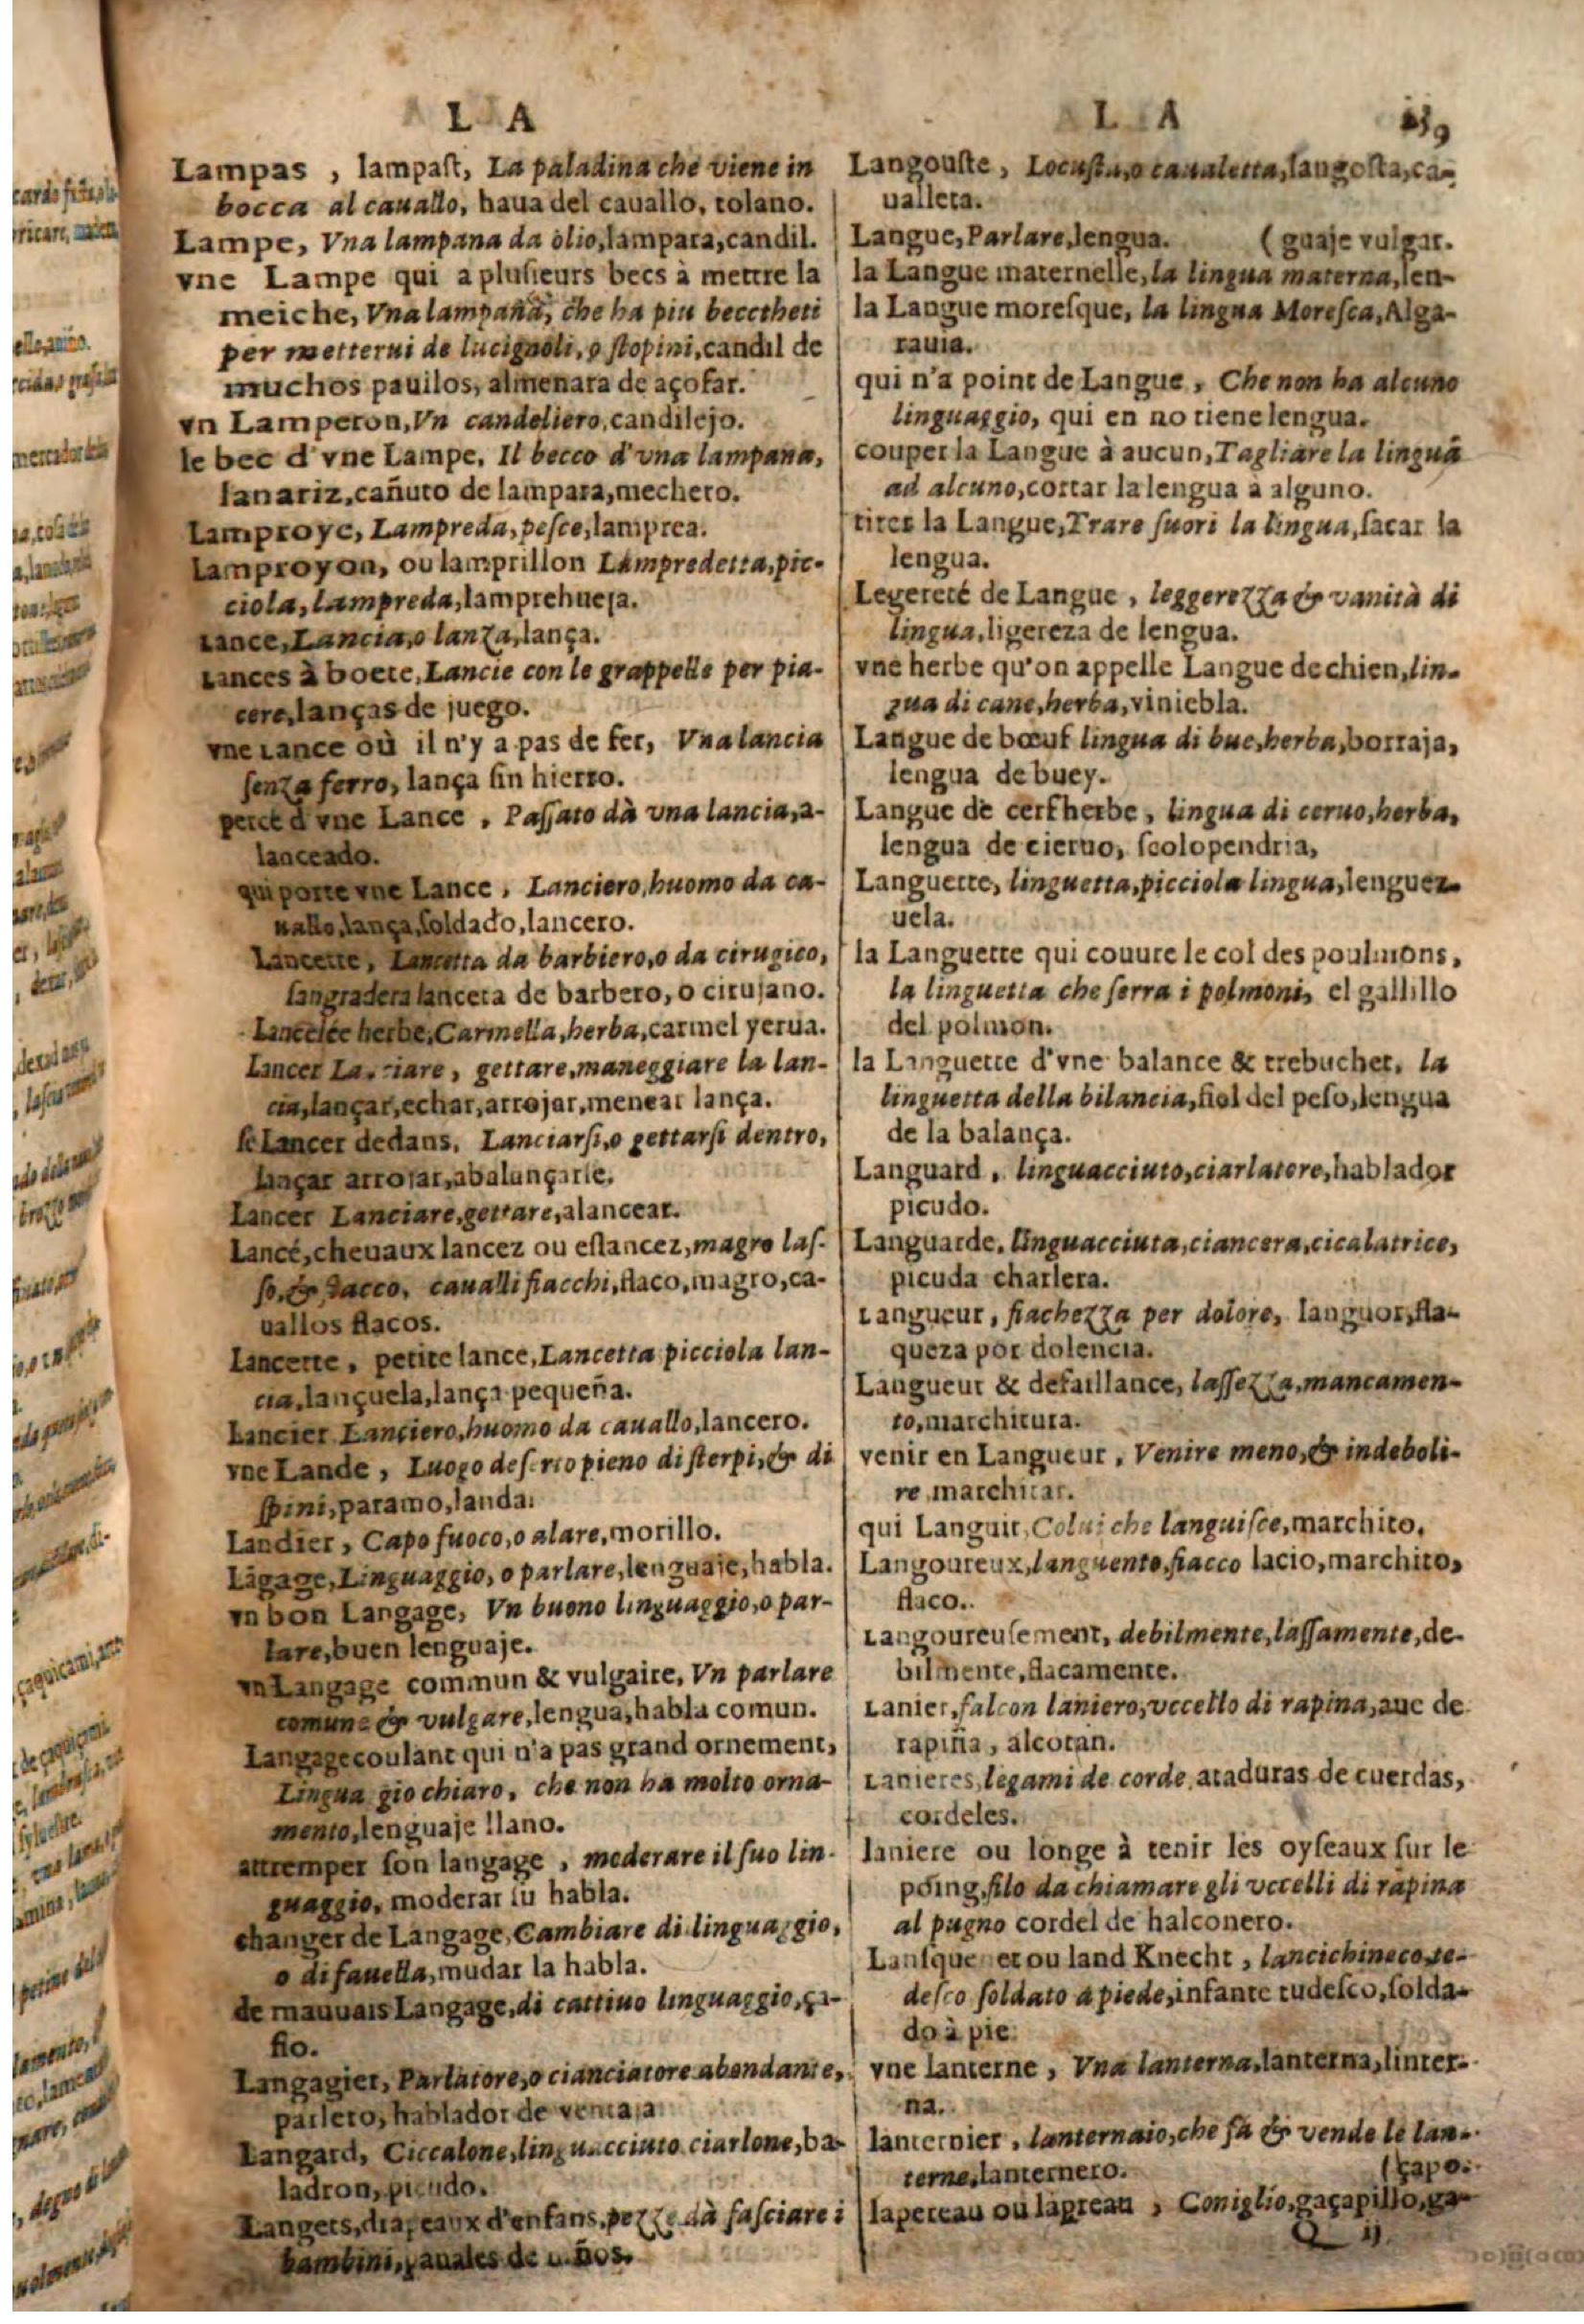 L A
Lampas , lampast, La paladina che viene in
bocca al cauallo, haua del cauallo, tolano.
Lampe, Vna lampana da olio, lampara, candil.
vne Lampe qui a plusieurs becs à mettre la
meiche, Vna lampana, che ha piu beccheti
per metterui de lucignoli, o stopini, candil de
muchos pauilos, almenara de açofar.
vn Lamperon, Vn candeliero, candilejo.
le bec d'vne Lampe, Il becco d'vna lampana,
la nariz, cañuto de lampara, mechero.
Lamproye, Lampreda, pesce, lamprea.
Lamproyon, ou lamprillon Lampredetta, pic-
ciola, Lampreda, lamprehuela.
Lance, Lancia, o lanza, lança.
Lances à boete, Lancie con le grappelle per pia-
cere, lanças de juego.
vne Lance où il n'y a pas de fer, Vna lancia
senza ferro, lança sin hierro.
percé d'vne Lance , Passato dà vna lancia, a-
lanceado.
qui porte vne Lance , Lanciero, huomo da ca-
uallo, lança, soldado, lancero.
Lancette , Lancetta da barbiero, o da cirugico,
sangradera lanceta de barbero, o cirujano.
Lancelée herbe, Carmella, herba, carmel yerua.
Lancer Lanciare , gettare, maneggiare la lan-
cia, lançar, echar, arrojar, menear lança.
se Lancer dedans, Lanciarsi, o gettarsi dentro,
lançar arrojar, abalançarse.
Lancer Lanciare, gettare, alancear.
Lancé, cheuaux lancez ou eslancez, magro las-
so, & fiacco, caualli fiacchi, flaco, magro, ca-
uallos flacos.
Lancette , petite lance, Lancetta picciola lan-
cia, lançuela, lança pequeña.
Lancier Lanciero, huomo da cauallo, lancero.
vne Lande , Luogo deserto pieno di sterpi, & di
spini, paramo, landa.
Landier , Capo fuoco, o alare, morillo.
Lāgage, Linguaggio, o parlare, lenguaje, habla.
vn bon Langage, Vn buono linguaggio, o par-
lare, buen lenguaje.
vn Langage commun & vulgaire, Vn parlare
comune & vulgare, lengua, habla comun.
Langage coulant qui n'a pas grand ornement,
Lingua gio chiaro, che non ha molto orna-
mento, lenguaje llano.
attremper son langage , moderare il suo lin-
guaggio, moderar su habla.
changer de Langage, Cambiare di linguaggio,
o di fauella, mudar la habla.
de mauuais Langage, di cattiuo linguaggio, ça-
fio.
Langagier, Parlatore, o cianciatore abondante,
parlero, hablador de ventaja
Langard, Ciccalone, linguacciuto ciarlone, ba-
ladron, picudo.
Langets, drapeaux d'enfans, pezze dà fasciare i
bambini, panales de niños.
L A 139
Langouste , Locusta, o caualetta, langosta, ca-
ualleta.
Langue, Parlare, lengua. ( guaje vulgar.
la Langue maternelle, la lingua materna, len-
la Langue moresque, la lingua Moresca, Alga-
rauia.
qui n'a point de Langue , Che non ha alcuno
linguaggio, qui en no tiene lengua.
couper la Langue à aucun, Tagliare la linguā
ad alcuno, cortar la lengua a alguno.
tirer la Langue, Trare fuori la lingua, sacar la
lengua.
Legereté de Langue , leggerezza & vanità di
lingua, ligereza de lengua.
vne herbe qu'on appelle Langue de chien, lin-
gua di cane, herba, viniebla.
Langue de bœuf lingua di bue, herba, borraja,
lengua de buey.
Langue de cerf herbe , lingua di ceruo, herba,
lengua de cieruo, scolopendria,
Languette, linguetta, picciola lingua, lenguez-
uela.
la Languette qui couure le col des poulmons,
la linguetta che serra i polmoni, el gallillo
del polmon.
la Languette d'vne balance & trebuchet, la
linguetta della bilancia, fiel del peso, lengua
de la balança.
Languard , linguacciuto, ciarlatore, hablador
picudo.
Languarde, linguacciuta, ciancera, cicalatrice,
picuda charlera.
Langueur , fiachezza per dolore, languor, fla-
queza por dolencia.
Langueur & defaillance, lassezza, mancamen-
to, marchitura.
venir en Langueur , Venire meno, & indeboli-
re marchitar.
qui Languit, Colui che languisce, marchito.
Langoureux, languento, fiacco lacio, marchito,
flaco.
Langoureusement, debilmente, lassamente, de-
bilmente, flacamente.
Lanier, falcon laniero, vccello di rapina, aue de
rapiña , alcotan.
Lanieres, legami de corde, ataduras de cuerdas,
cordeles.
laniere ou longe à tenir les oyseaux sur le
poing, filo da chiamare gli vccelli di rapina
al pugno cordel de halconero.
Lansquenet ou land Knecht , lancichineco, te-
desco soldato a piede, infante tudesco, solda-
do à pie.
vne lanterne , Vna lanterna, lanterna, linter-
na.
lanternier , lanternaio, che fà & vende le lan-
terne, lanternero. (çapo.
lapereau ou lapreau , Coniglio, gaçapillo, ga-
Q ij